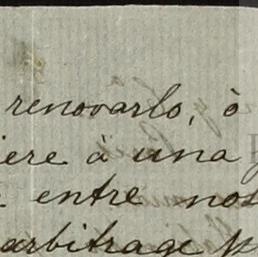 renovarlo, ò
iere à una
entre nos
arbitrage p